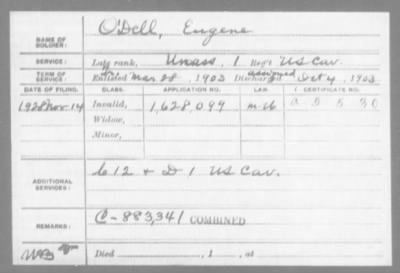 NAME OF SOLDIER: O'Dell, Eugene
SERVICE: Late rank, Unass, 1 Reg't US Cav.
TERM OF SERVICE: Enlisted Mar 28, 1903 Discharged assigned Oct 4, 1903
DATE OF FILING. CLASS. APPLICATION NO. LAW. CERTIFICATE NO.
1928 Nov. 14 Invalid, 1,628,099
Widow,
Minor,
ADDITIONAL SERVICES: & D 1 US Cav.
REMARKS: C-883,341 COMBINED
Died , 1 , at